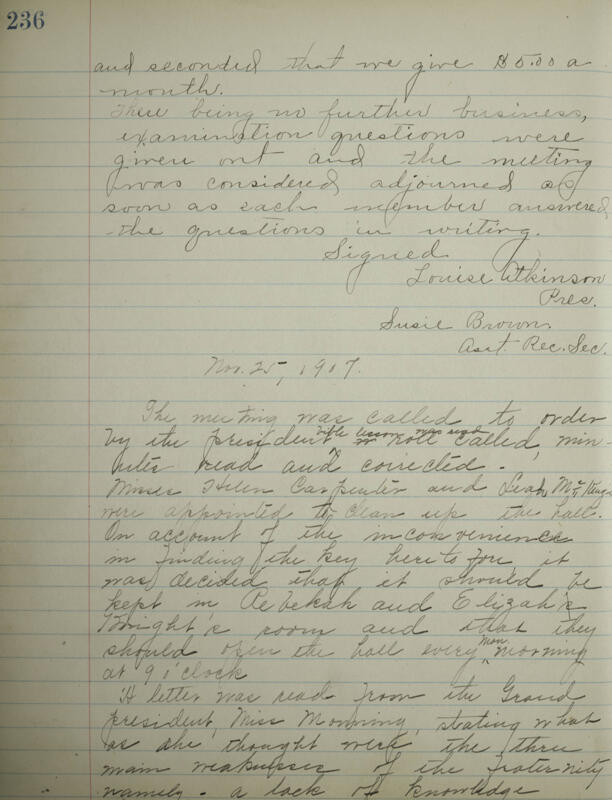 236
and seconded that we give $5.00 a
month.
There being no further business,
examination questions were
given out and the meeting
was considered adjourned as
soon as each member answered
the questions in writing.
Signed
Louise Atkinson
Pres.
Susie Brown.
Asst. Rec. Sec.
Nov. 25, 1907.
The meeting was called to order
bible lesson was read
by the president, Roll called, min-
utes read and corrected.
Misses Helen Carpenter and Leah
were appointed to clean up the hall.
On account of the inconvenience
in finding the key heretofore, it
was decided that it should be
kept in Rebekah and Elizabeth
Knight's room and that they
should open the hall every Mon. morning
at 9 o'clock
A letter was read from the Grand
president, Miss Monning, stating what
as she thought were the three
main weaknesses of the fraternity
namely - a lack of knowledge